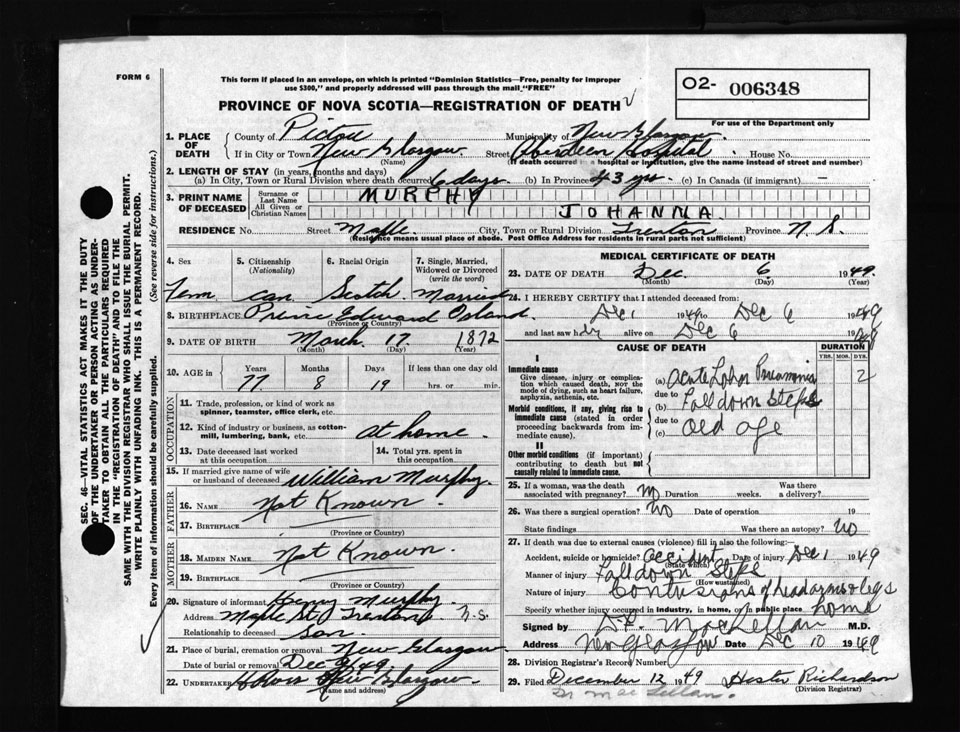 FORM 6
This form if placed in an envelope, on which is printed "Dominion Statistics—Free, penalty for improper
use $300," and properly addressed will pass through the mail "FREE"
O2- 006348
For use of the Department only
PROVINCE OF NOVA SCOTIA—REGISTRATION OF DEATH
SEC. 46—VITAL STATISTICS ACT MAKES IT THE DUTY
OF THE UNDERTAKER OR PERSON ACTING AS UNDER-
TAKER TO OBTAIN ALL THE PARTICULARS REQUIRED
IN THE "REGISTRATION OF DEATH" AND TO FILE THE
SAME WITH THE DIVISION REGISTRAR WHO SHALL ISSUE THE BURIAL PERMIT.
WRITE PLAINLY WITH UNFADING INK. THIS IS A PERMANENT RECORD.
Every item of information should be carefully supplied. (See reverse side for instructions.)
1. PLACE OF DEATH County of Pictou Municipality of New Glasgow
If in City or Town New Glasgow Street Aberdeen Hospital House No.
(Name) (If death occurred in a hospital or institution, give the name instead of street and number)
2. LENGTH OF STAY (in years, months and days)
(a) In City, Town or Rural Division where death occurred 6 days (b) In Province 43 yrs. (c) In Canada (if immigrant) —
3. PRINT NAME OF DECEASED Surname or Last Name MURPHY
All Given or Christian Names JOHANNA
RESIDENCE No. Street Maple City, Town or Rural Division Trenton Province N. S.
(Residence means usual place of abode. Post Office Address for residents in rural parts not sufficient)
4. Sex 5. Citizenship (Nationality) 6. Racial Origin 7. Single, Married, Widowed or Divorced (write the word)
Fem can. Scotch. Married
8. BIRTHPLACE Prince Edward Island.
(Province or Country)
9. DATE OF BIRTH March 17 1872
(Month) (Day) (Year)
10. AGE in Years Months Days If less than one day old
77 8 19 hrs. or min.
OCCUPATION
11. Trade, profession, or kind of work as spinner, teamster, office clerk, etc.
12. Kind of industry or business, as cotton-mill, lumbering, bank, etc. At home.
13. Date deceased last worked at this occupation 14. Total yrs. spent in this occupation
15. If married give name of wife or husband of deceased William Murphy.
FATHER
16. NAME Not Known.
17. BIRTHPLACE
(Province or Country)
MOTHER
18. MAIDEN NAME Not Known.
19. BIRTHPLACE
(Province or Country)
20. Signature of informant Henry Murphy.
Address Maple St. Trenton N.S.
Relationship to deceased Son.
21. Place of burial, cremation or removal New Glasgow
Date of burial or removal Dec 9, 49.
22. UNDERTAKER New Glasgow.
(Name and address)
MEDICAL CERTIFICATE OF DEATH
23. DATE OF DEATH Dec. 6 1949.
(Month) (Day) (Year)
24. I HEREBY CERTIFY that I attended deceased from:
Dec 1 1949 to Dec 6 1949
and last saw her alive on Dec 6 1949
CAUSE OF DEATH DURATION
YRS. MOS. DYS.
I
Immediate cause
Give disease, injury or complication which caused death, not the mode of dying, such as heart failure, asphyxia, asthenia, etc.
(a) Acute Lobar Pneumonia 2
due to
Morbid conditions, if any, giving rise to immediate cause (stated in order proceeding backwards from immediate cause).
(b) Fall down Steps
due to
(c) Old age
II
Other morbid conditions (if important) contributing to death but not causally related to immediate cause.
25. If a woman, was the death associated with pregnancy? No Duration weeks. Was there a delivery?
26. Was there a surgical operation? No Date of operation 19
State findings Was there an autopsy? No
27. If death was due to external causes (violence) fill in also the following:—
Accident, suicide or homicide? Accident Date of injury Dec 1 1949
(State which)
Manner of injury Fall down Steps
(How sustained)
Nature of injury Contusions of head arms & legs
Specify whether injury occurred in industry, in home, or in public place home
Signed by D.F. MacLellan M.D.
Address New Glasgow Dec 10 1949
28. Division Registrar's Record Number
29. Filed December 12 1949 Hester Richardson
(Division Registrar)
Dr MacLellan.